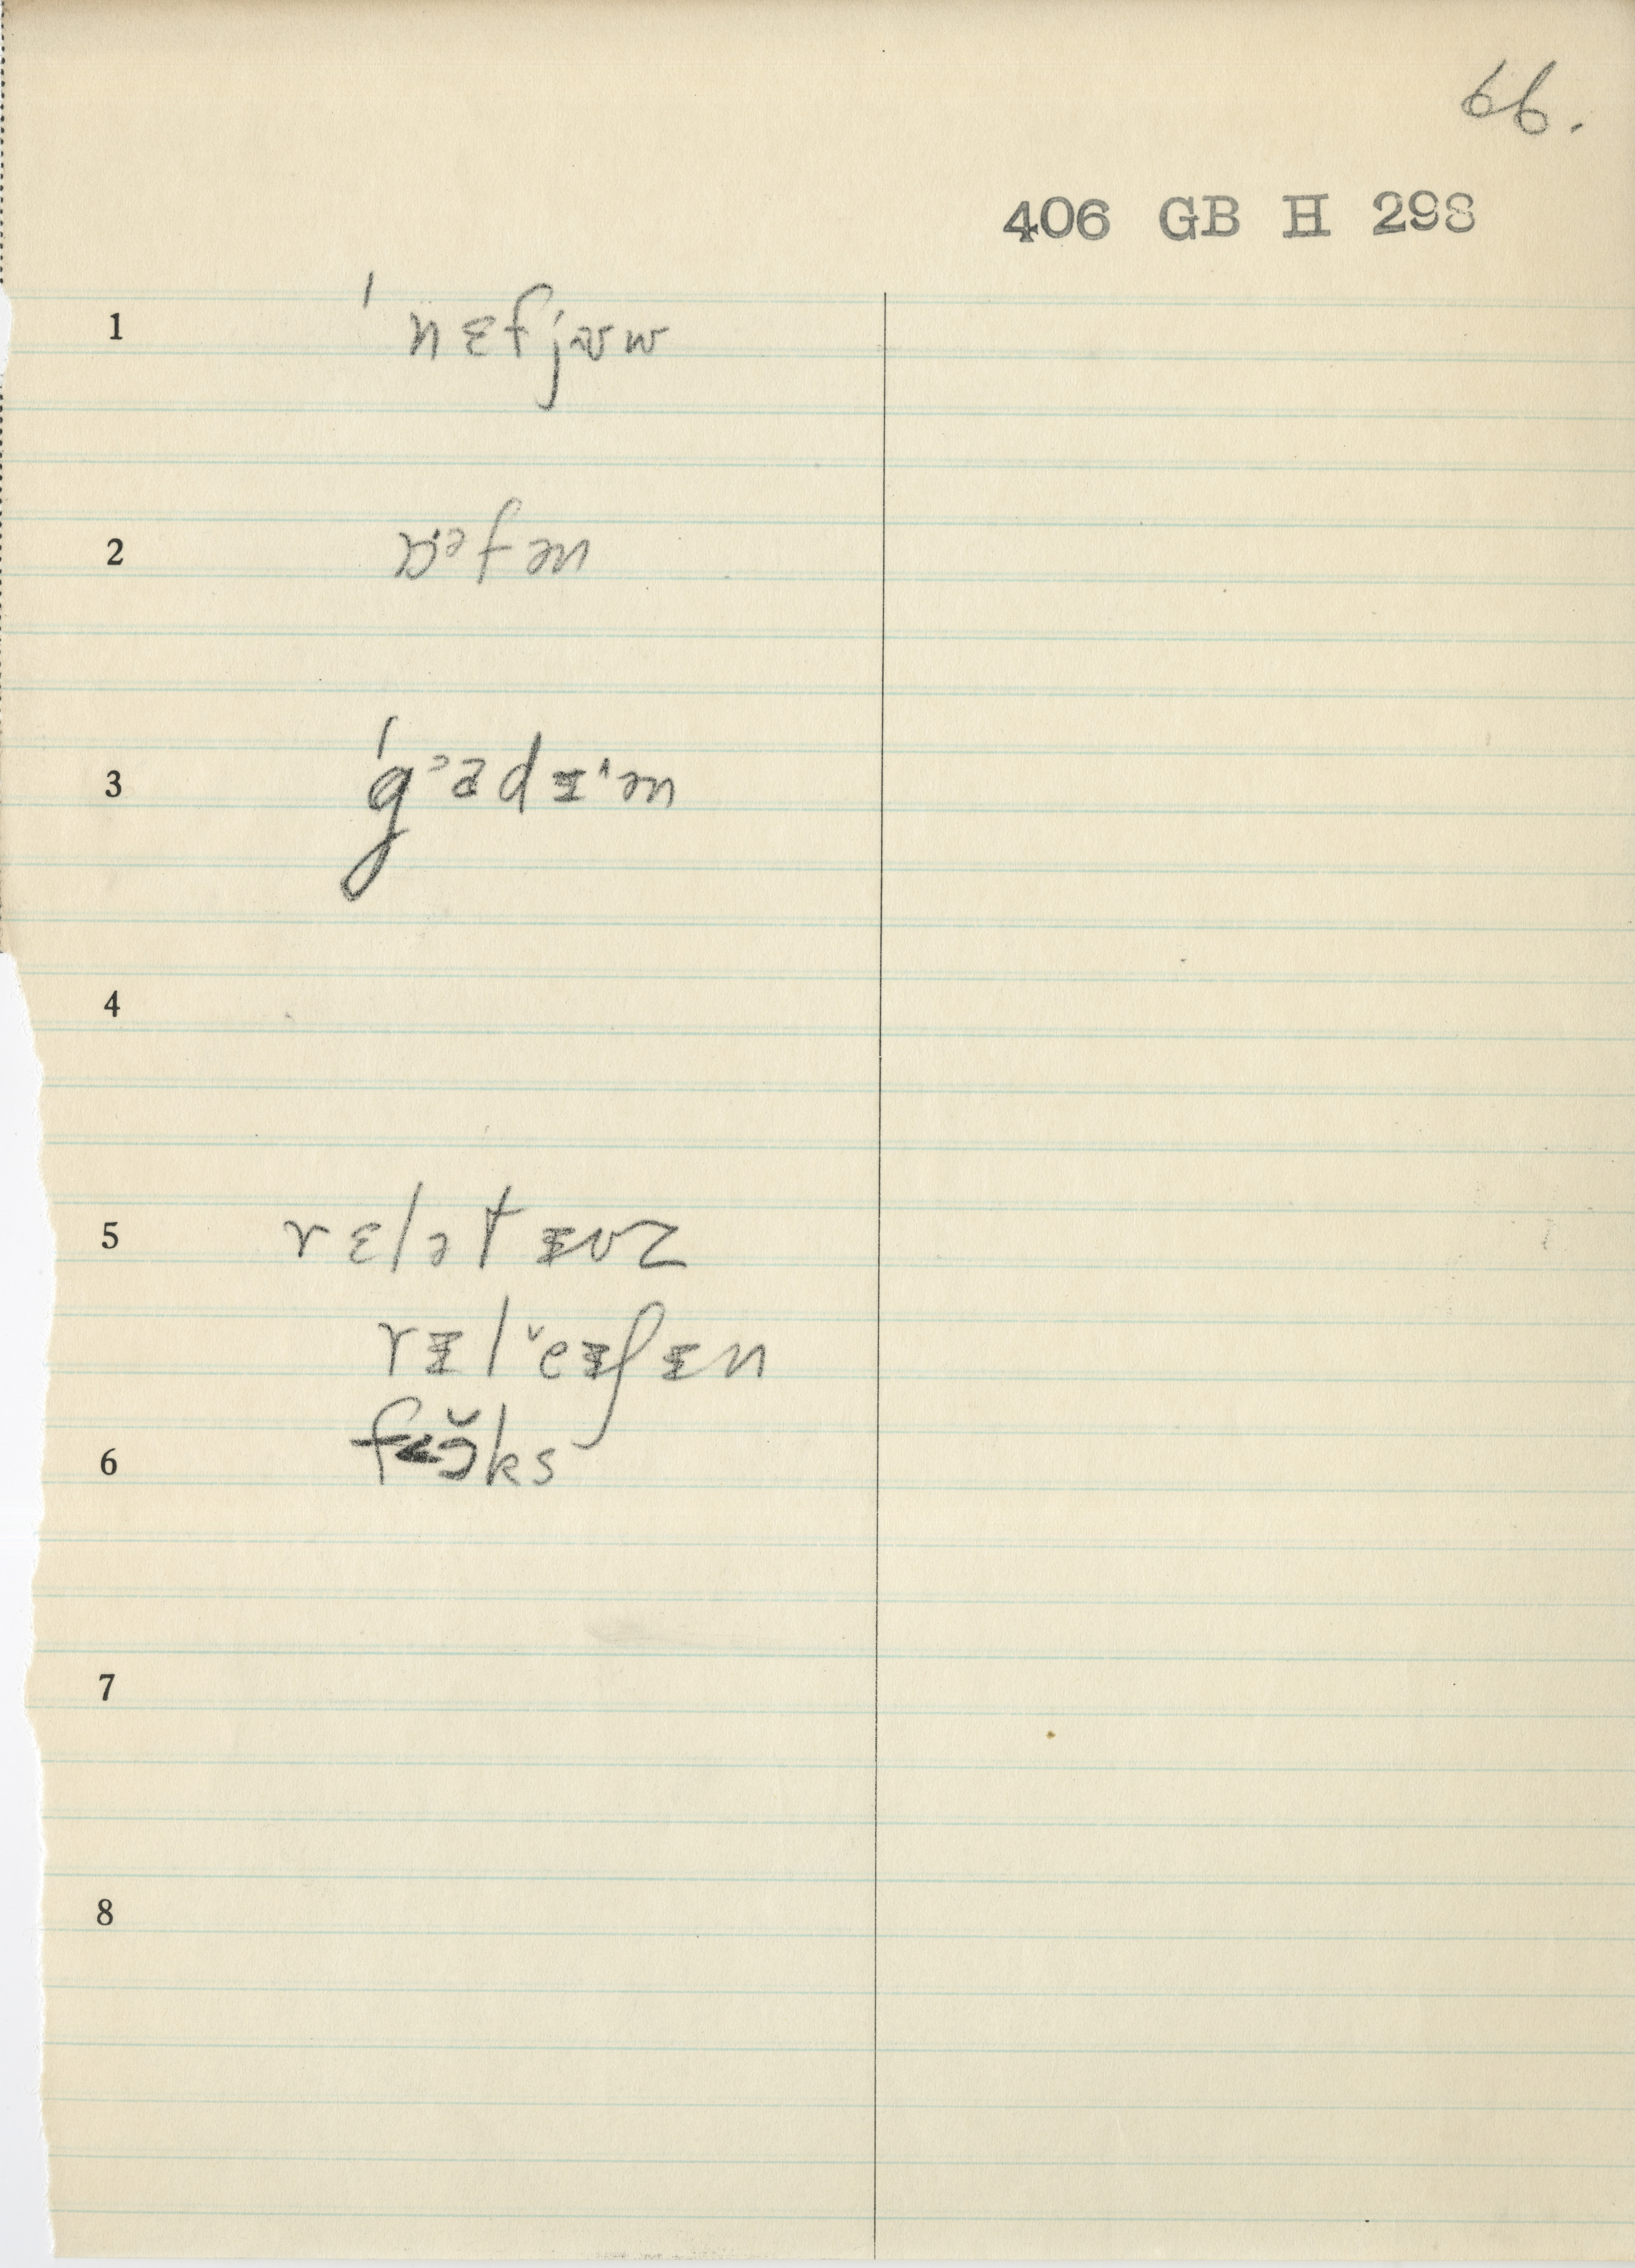 66.
406 GB H 298
1 ˈnɛfjᵿw
2 ɒᵊ·fən
3 ˈgᵓɑdɪˈən
4
5 rɛlətɪvz
rɪlˇeɪʃɪn
6 fɔ̆ks
7
8